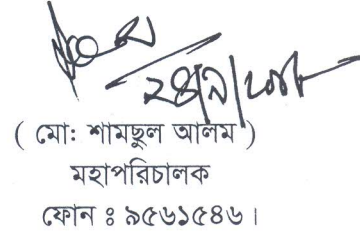 ( মো: শামছুল আলম )
মহাপরিচালক
ফোন ঃ ৯৫৬১৫৪৬।